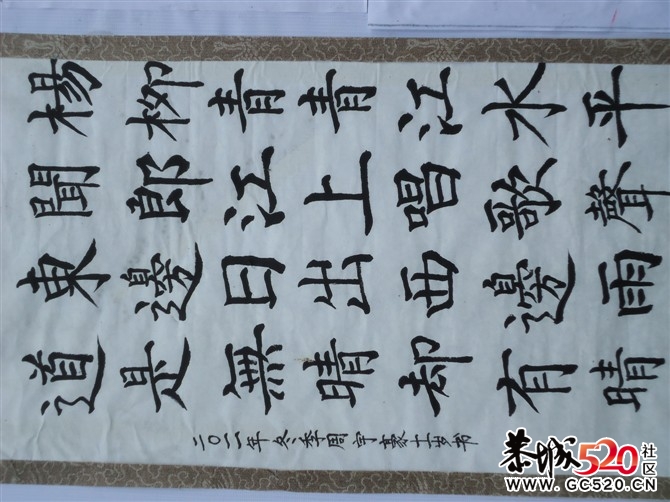 楊柳青青江水平
聞郎江上唱歌聲
東邊日出西邊雨
道是無晴却有晴
二〇一一年冬季周宇豪十岁书
恭城520社区
WWW.GC520.CN